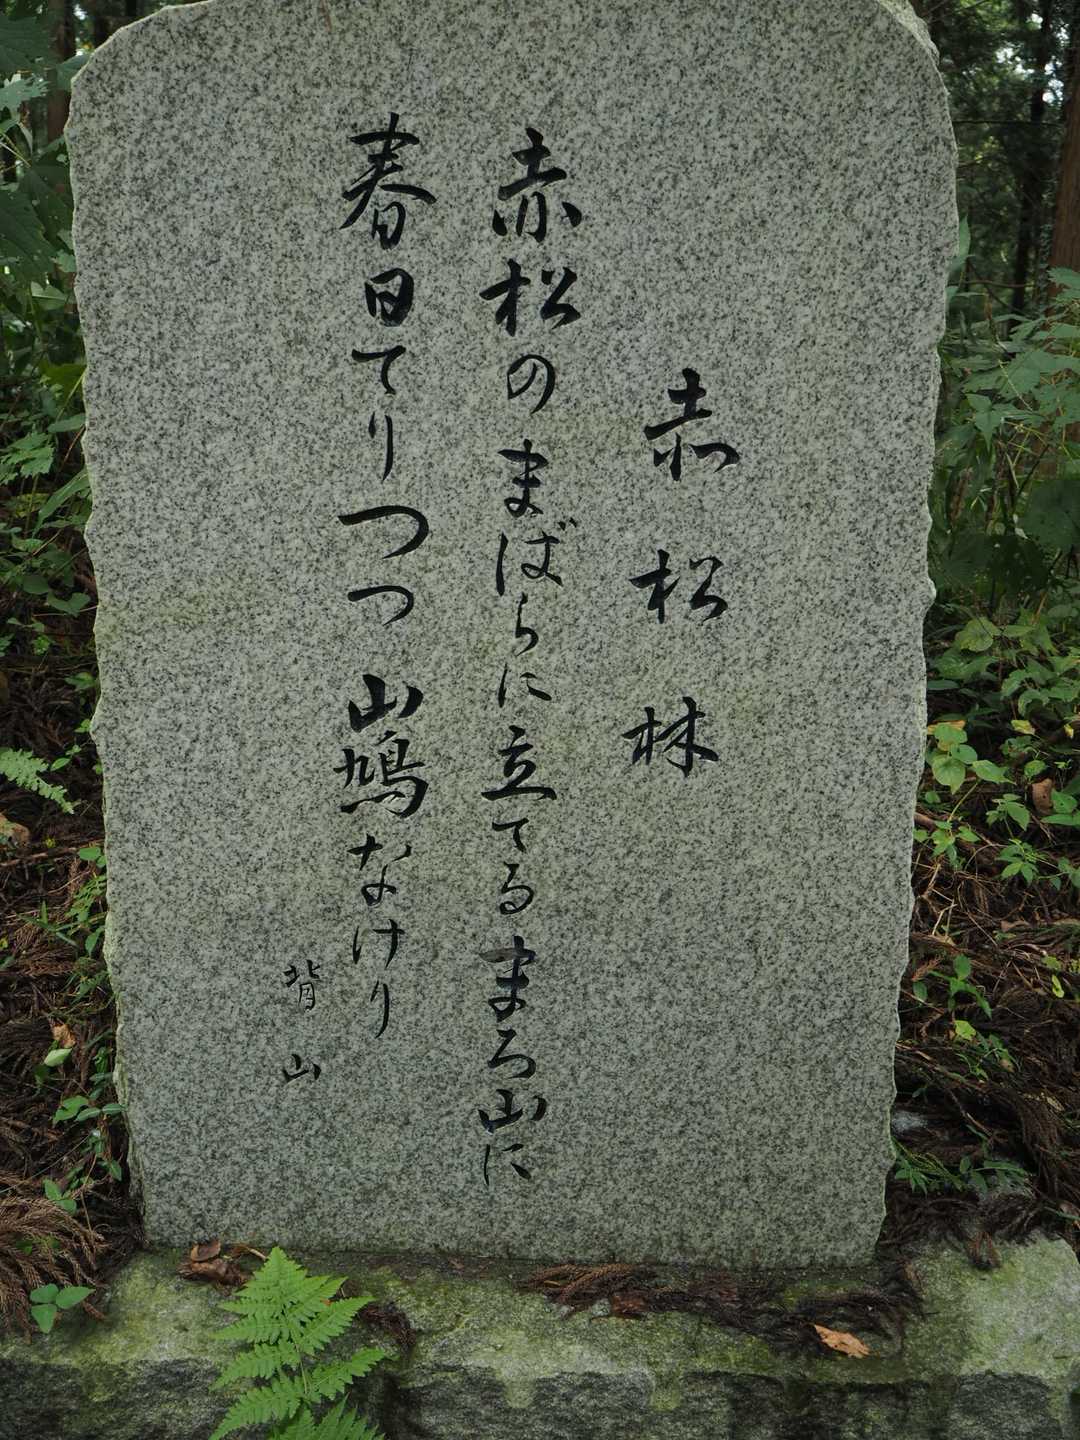 赤松林
赤松のまばらに立てるまろ山に
春日てりつつ山鳩なけり
背山